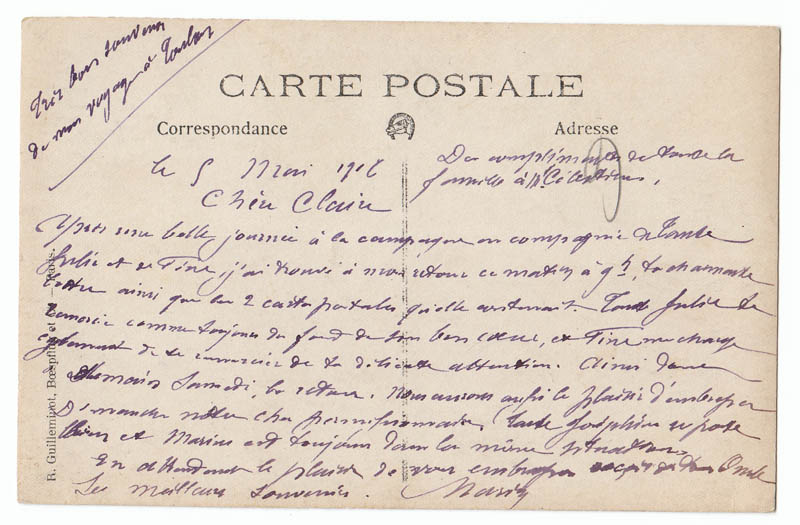 Très bons souvenirs
de mon voyage à Toulon
CARTE POSTALE
Correspondance
Adresse
Des compliments de toute la
famille à Mr Célestin.
le 5 Mai 1916
Chère Claire
Après une belle journée à la campagne en compagnie de Tante
Julie et de Fine, j'ai trouvé à mon retour ce matin à 9h, ta charmante
lettre ainsi que les 2 cartes postales qu'elle contenait. Tante Julie te
remercie comme toujours du fond de son bon cœur, et Fine me charge
également de te remercier de ta délicate attention. Ainsi donc
Samedi, le retour. Nous aurons aussi le plaisir d'embrasser
Dimanche notre cher permissionnaire. Tante Joséphine se porte
bien et Marius est toujours dans la même situation.
En attendant le plaisir de vous embrasser Oncle
Les meilleurs souvenirs. Marius
R. Guilleminot, Bœspflug et Cie - Paris.